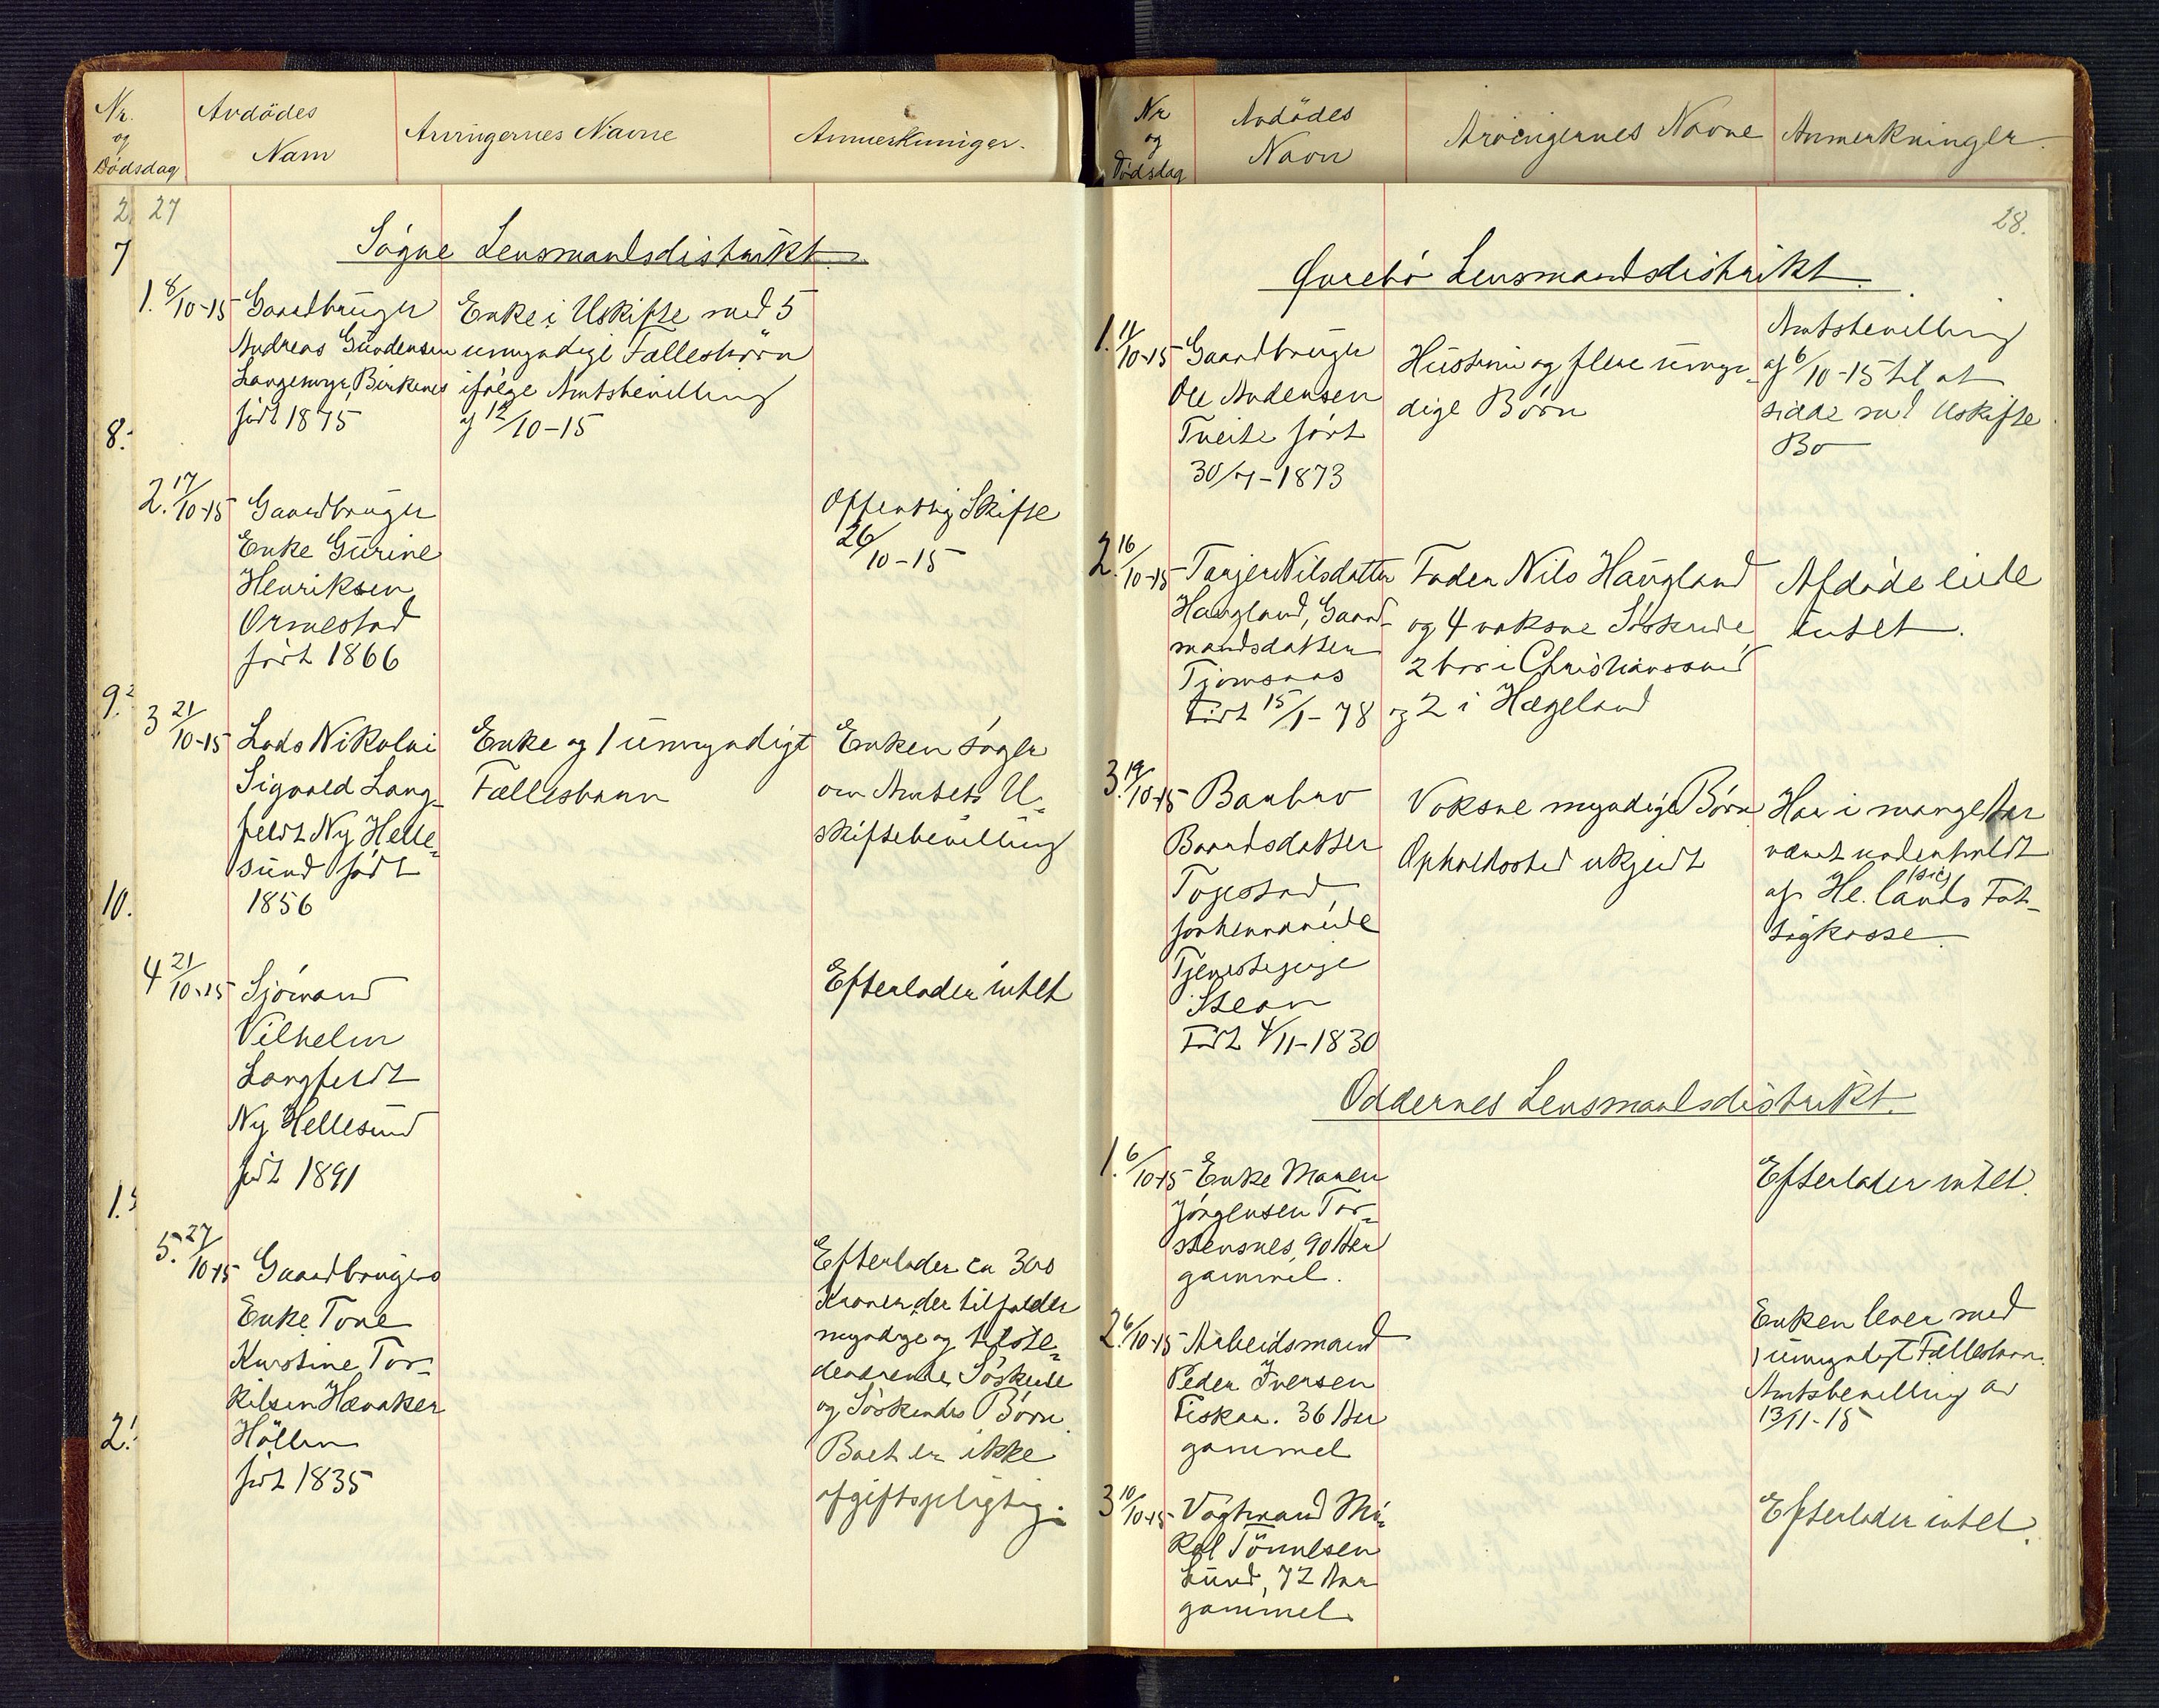 Nr. og Dödsdag
Avdödes Navn
Arvingernes Navne
Anmerkninger.
27
Søgne Lensmandsdistrikt.
1. 8/10-15
Gaardbruger
Andreas Gundersen
Langemyr, Birkenes
født 1875
Enke i Uskifte med 5
umyndige Fællesbørn
ifølge Amtsbevilling
af 12/10-15
2. 17/10-15
Gaardbruger
Enke Gurine
Henriksen
Ormestad
født 1866
Offentlig Skifte
26/10-15
3 21/10-15
Lods Nikolai
Sigvald Lang-
feldt Ny Helle-
sund født
1856
Enke og 1 umyndigt
Fællesbarn
Enken søger
om Amtets U-
skiftebevilling
4 21/10-15
Sjömand
Vilhelm
Langfeldt
Ny Hellesund
født 1891
Efterlader intet
5. 27/10-15
Gaardbrugers
Enke Tone
Kirstine Tor-
kilsen Havaker
Höllen
født 1835
Efterlader ca 300
Kroner, der tilfalder
myndige og tilste-
deværende Søskende
og Søskendes Børn.
Boet er ikke
afgiftspligtig.
7
8.
9.
10.
1.
2.
Nr og Dödsdag
Avdödes Navn
Arvingernes Navne
Anmerkninger.
28.
Øvrebø Lensmandsdistrikt.
1. 11/10-15
Gaardbruger
Ole Andensen
Tveite født
30/7-1873
Hustru og flere umyn-
dige Børn
Amtsbevilling
af 6/10-15 til at
sidde med Uskifte
Bo
2. 16/10-15
Tarjer Nilsdatter
Haugland, Gaard-
mandsdatter
Tjomsaas
Født 15/1-78
Fader Nils Haugland
og 4 voksne Søskende
2 bor i Christianssand
og 2 i Hægeland
Afdøde eiede
intet.
3. 19/10-15
Barbro
Baardsdatter
Togestad,
forhenværende
Tjenestepige
Stean
Født 4/11-1830
Voksne myndige Børn
Opholdssted ukjendt
Har i mange Aar
været underholdt
af He.(sic)lands Fat-
tigkasse.
Oddernes Lensmandsdistrikt.
1. 6/10-15
Enke Maren
Jørgensen Tor-
stensnes, 90 Aar
gammel.
Efterlader intet.
2. 6/10-15
Arbeidsmand
Peder Iversen
Fiskaa. 36 Aar
gammel
Enken lever med
1 umyndigt Fællesbarn.
Amtsbevilling av
13/11-15
3 10/10-15
Vagtmand Mi-
kal Tönnesen
Lund, 72 Aar
gammel
Efterlader intet.